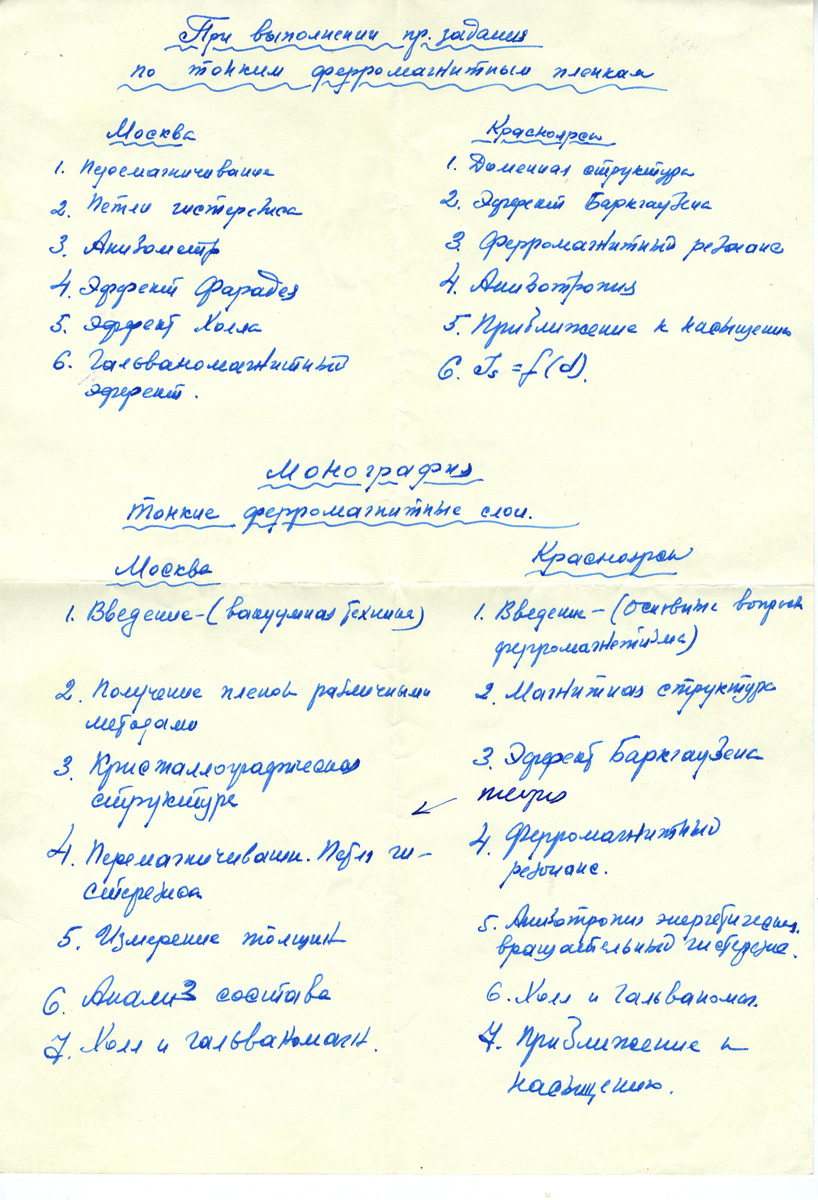 При выполнении пр. задания
по тонким ферромагнитным пленкам
Москва
1. Перемагничивание
2. Петли гистерезиса
3. Анизометр
4. Эффект Фарадея
5. Эффект Холла
6. Гальваномагнитный
эффект.
Красноярск
1. Доменная структура
2. Эффект Баркгаузена
3. Ферромагнитный резонанс
4. Анизотропия
5. Приближение к насыщению
6. Is = f(d).
Монография
Тонкие ферромагнитные слои.
Москва
1. Введение - (вакуумная техника)
2. Получение пленок различными
методами
3. Кристаллографическая
структура
4. Перемагничивание. Петля ги-
стерезиса
5. Измерение толщин
6. Анализ состава
7. Холл и гальваномагн.
Красноярск
1. Введение - (Основные вопросы
ферромагнетизма)
2. Магнитная структура
3. Эффект Баркгаузена
теория
4. Ферромагнитный
резонанс.
5. Анизотропия энергетическая.
вращательный гистерезис.
6. Холл и гальваномаг.
7. Приближение к
насыщению.